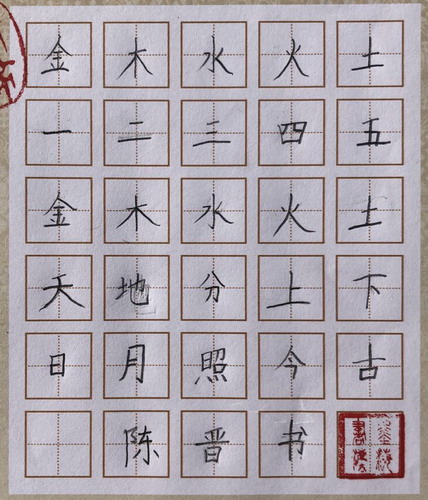 金木水火土
一二三四五
金木水火土
天地分上下
日月照今古
陈晋书